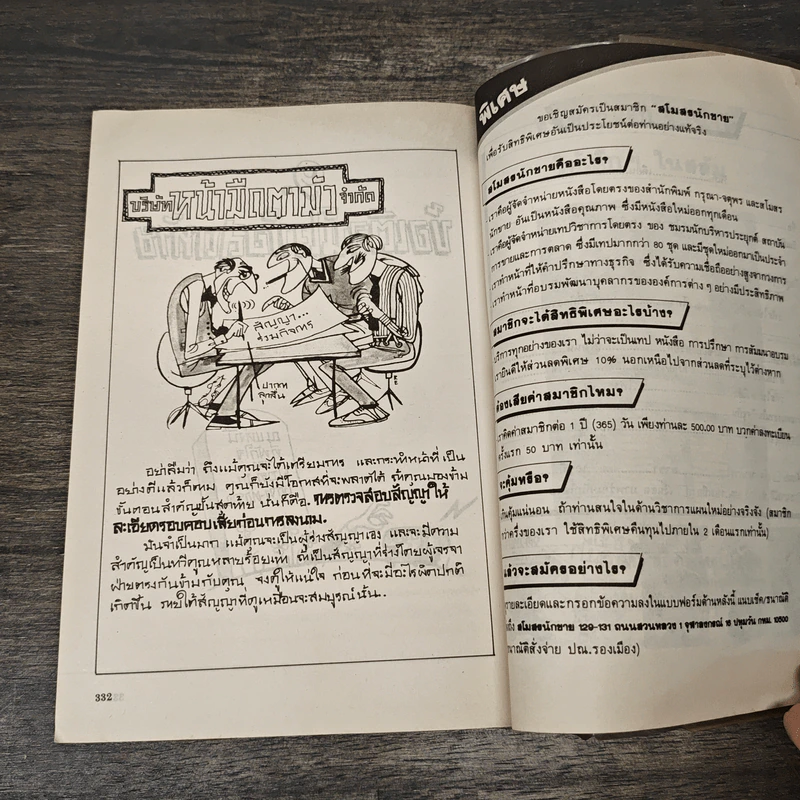 บริษัทหน้ามืดตามัวจำกัด
สัญญา...
ร่วมกิจการ
ปากกา
ลูกลื่น
อย่าลืมว่า ถึงแม้คุณจะได้เตรียมการ และกระทำหน้าที่เป็น
อย่างดีแล้วก็ตาม คุณก็ยังมีโอกาสที่จะพลาดได้ ถ้าคุณมองข้าม
ขั้นตอนสำคัญขั้นสุดท้าย นั่นก็คือ, การตรวจสอบสัญญาให้
ละเอียดรอบคอบเสียก่อนการลงนาม.
มันจำเป็นมาก แม้คุณจะเป็นผู้ร่างสัญญาเอง และจะมีความ
สำคัญเป็นทวีคูณหลายร้อยเท่า ถ้าเป็นสัญญาที่ร่างโดยผู้เจรจา
ฝ่ายตรงกันข้ามกับคุณ จงดูให้แน่ใจ ก่อนที่จะมีอะไรผิดปกติ
เกิดขึ้น ภายใต้สัญญาที่ดูเหมือนจะสมบูรณ์นั้น..
332
พิเศษ
ขอเชิญสมัครเป็นสมาชิก "สโมสรนักขาย"
เพื่อรับสิทธิพิเศษอันเป็นประโยชน์ต่อท่านอย่างแท้จริง
สโมสรนักขายคืออะไร?
เราคือผู้จัดจำหน่ายหนังสือโดยตรงของสำนักพิมพ์ กรุณา-จตุพร และสโมสร
นักขาย อันเป็นหนังสือคุณภาพ ซึ่งมีหนังสือใหม่ออกทุกเดือน
เราคือผู้จัดจำหน่ายเทปวิชาการโดยตรง ของ ชมรมนักบริหารประยุกต์ สถาบัน
การขายและการตลาด ซึ่งมีเทปมากกว่า 80 ชุด และมีชุดใหม่ออกมาเป็นประจำ
เราทำหน้าที่ให้คำปรึกษาทางธุรกิจ ซึ่งได้รับความเชื่อถืออย่างสูงจากวงการ
เราทำหน้าที่อบรมพัฒนาบุคลากรขององค์การต่าง ๆ อย่างมีประสิทธิภาพ
สมาชิกจะได้สิทธิพิเศษอะไรบ้าง?
บริการทุกอย่างของเรา ไม่ว่าจะเป็นเทป หนังสือ การปรึกษา การสัมมนาอบรม
เรายินดีให้ส่วนลดพิเศษ 10% นอกเหนือไปจากส่วนลดที่ระบุไว้ต่างหาก
ต้องเสียค่าสมาชิกไหม?
เราคิดค่าสมาชิกต่อ 1 ปี (365) วัน เพียงท่านละ 500.00 บาท บวกค่าลงทะเบียน
ครั้งแรก 50 บาท เท่านั้น
จะคุ้มหรือ?
เกินคุ้มแน่นอน ถ้าท่านสนใจในด้านวิชาการแผนใหม่อย่างจริงจัง (สมาชิก
กว่าครึ่งของเรา ใช้สิทธิพิเศษคืนทุนไปภายใน 2 เดือนแรกเท่านั้น)
แล้วจะสมัครอย่างไร?
ดูรายละเอียดและกรอกข้อความลงในแบบฟอร์มด้านหลังนี้ แนบเช็ค/ธนาณัติ
ถึง สโมสรนักขาย 129-131 ถนนสวนหลวง 1 จุฬาลงกรณ์ 16 ปทุมวัน กทม. 10500
(ธนาณัติสั่งจ่าย ปณ.รองเมือง)